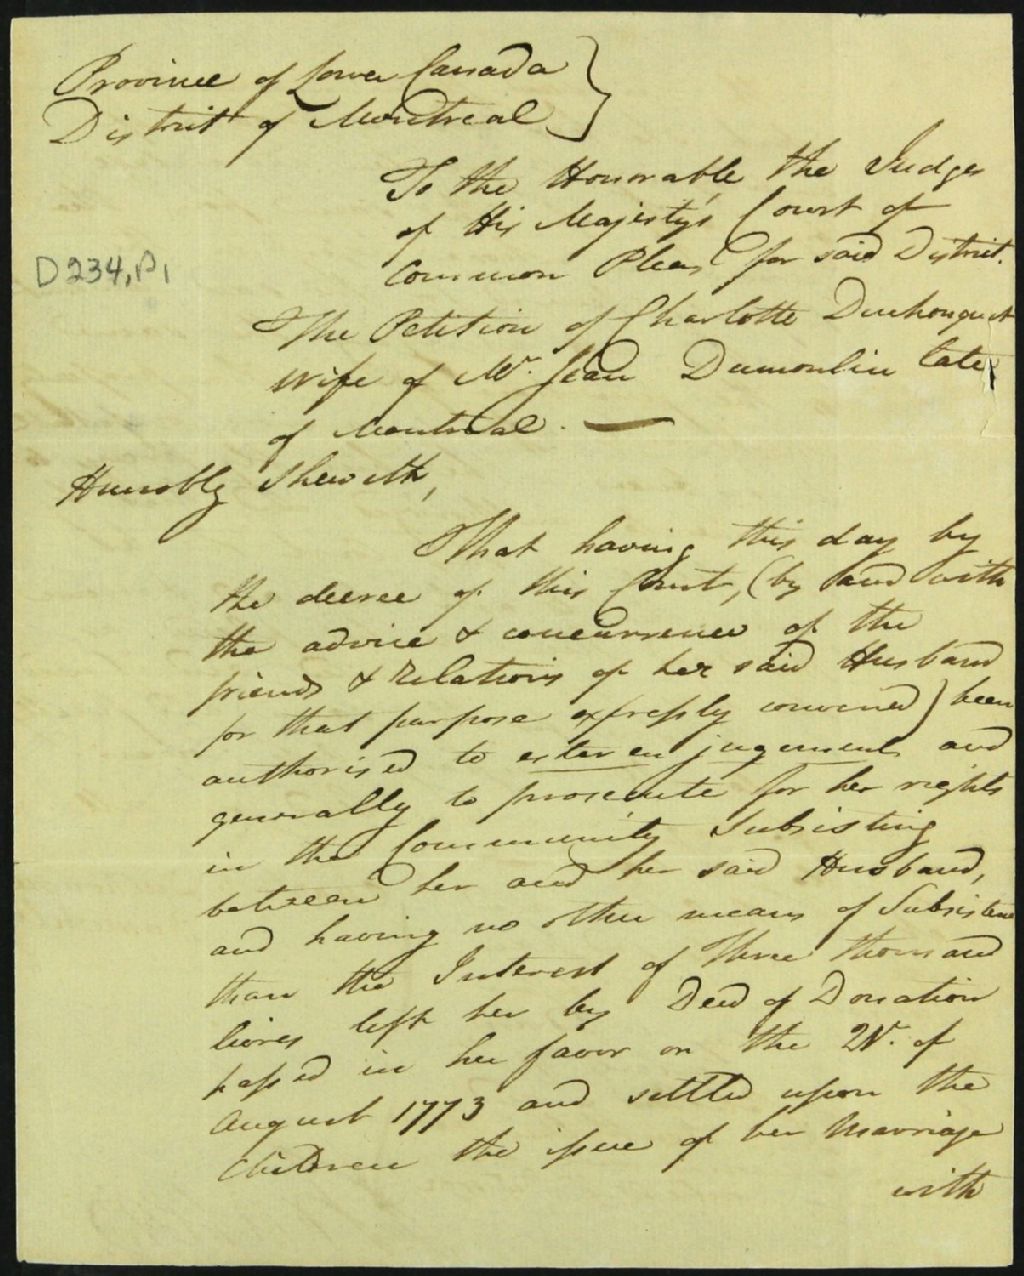 Province of Lower Canada
District of Montreal
To the Honorable the Judges
of His Majesty's Court of
Common Pleas for said District.
D234, P1
The Petition of Charlotte Duchouquet
wife of Mr. Jean Dumoulin late
of Montreal. —
Humbly Sheweth,
That having this day by
the decree of this Court, (by and with
the advice & concurrence of the
friends & Relations of her said Husband
for that purpose expressly convened) been
authorised to ester en jugement and
generally to prosecute for her rights
in the Community Subsisting
between her and her said Husband,
and having no other means of Subsistence
than the Interest of Three thousand
livres left her by Deed of Donation
passed in her favor on the of
August 1773 and settled upon the
Children the issue of her Marriage
with